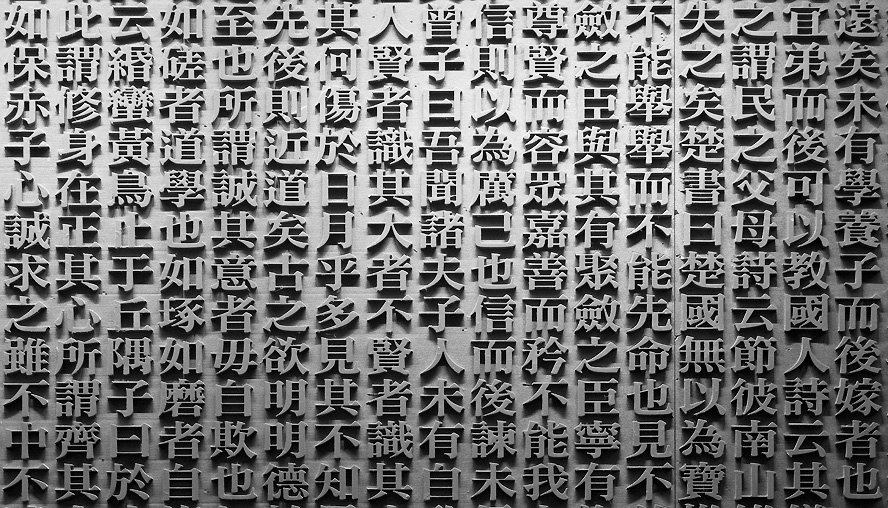 遠矣未有學養子而後嫁者也
宜弟而後可以教國人詩云其
之謂民之父母詩云節彼南山
失之矣楚書曰楚國無以為寶
不能舉舉而不能先命也見不
斂之臣與其有聚斂之臣寧有
尊賢而容眾嘉善而矜不能我
信則以為厲己也信而後諫未
曾子曰吾聞諸夫子人未有自
人賢者識其大者不賢者識其
其何傷於日月乎多見其不知
先後則近道矣古之欲明明德
至也所謂誠其意者毋自欺也
如磋者道學也如琢如磨者自
云緡蠻黃鳥止于丘隅子曰於
此謂修身在正其心所謂齊其
如保赤子心誠求之雖不中不